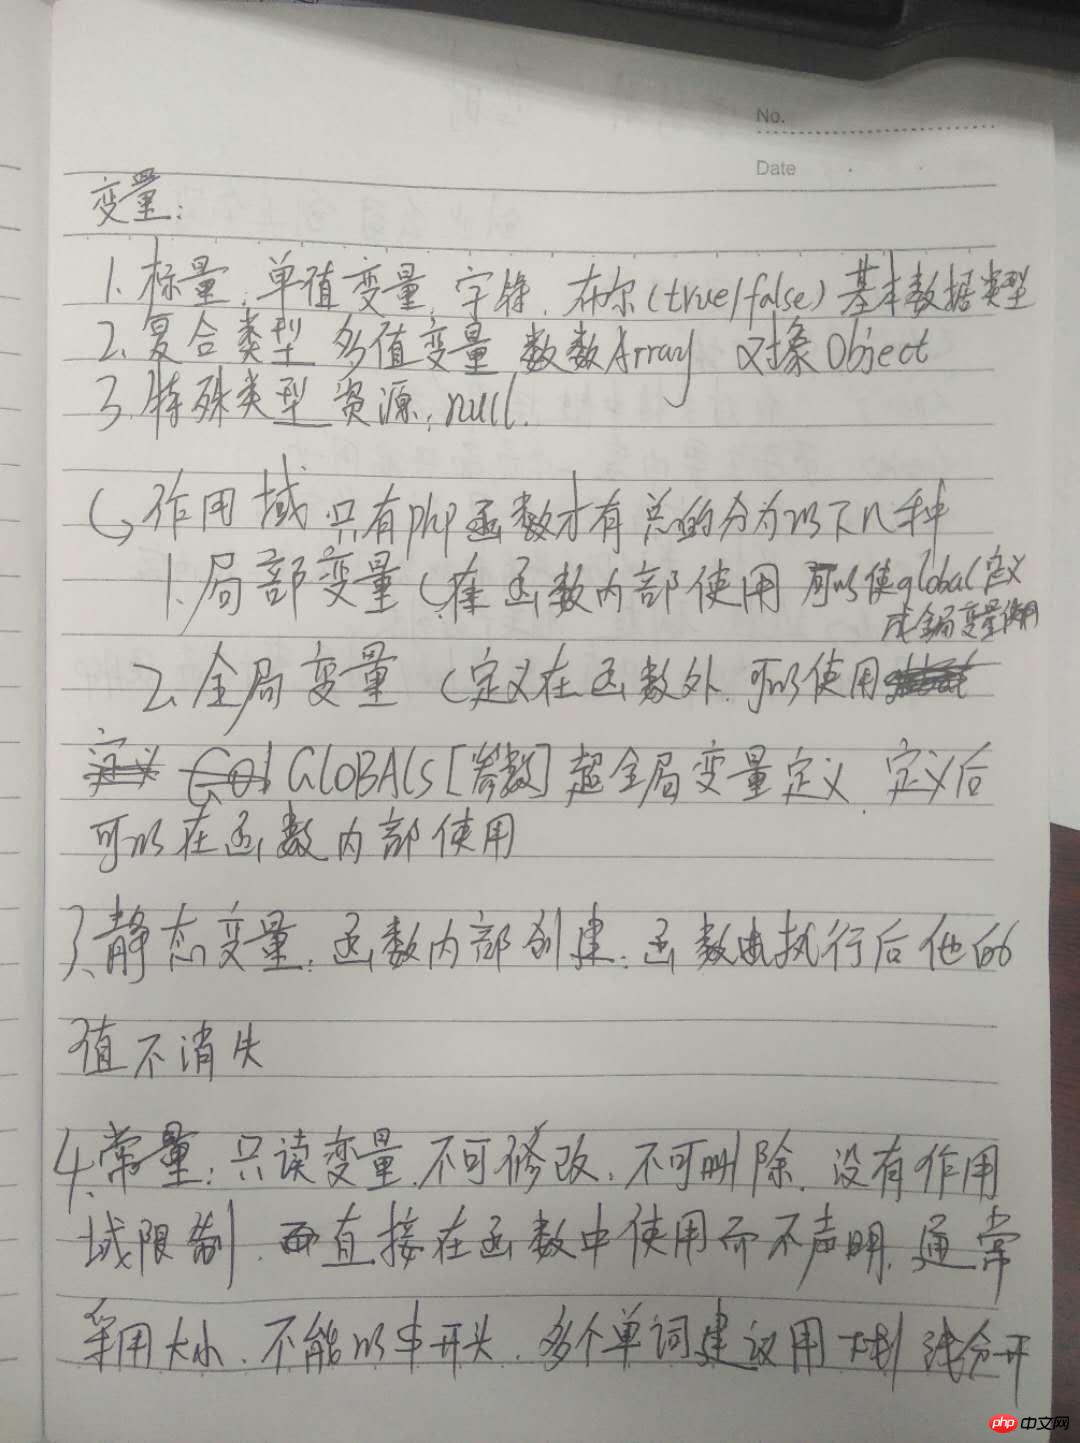 No.
Date
变量:
1. 标量. 单值变量. 字符. 布尔(true/false) 基本数据类型
2. 复合类型 多值变量 数数Array 对象Object
3. 特殊类型 资源, null.
作用域 只有php函数才有 总的分为以下几种
1. 局部变量 (在函数内部使用 可以使global定义
成全局变量使用
2. 全局变量 (定义在函数外. 可以使用
定义 GlOBAls[参数] 超全局变量定义. 定义后
可以在函数内部使用
3. 静态变量: 函数内部创建. 函数执行后他的
值不消失
4. 常量: 只读变量. 不可修改. 不可删除. 没有作用
域限制. 直接在函数中使用而不声明. 通常
采用大小. 不能以$开头. 多个单词建议用下划线分开
php 中文网